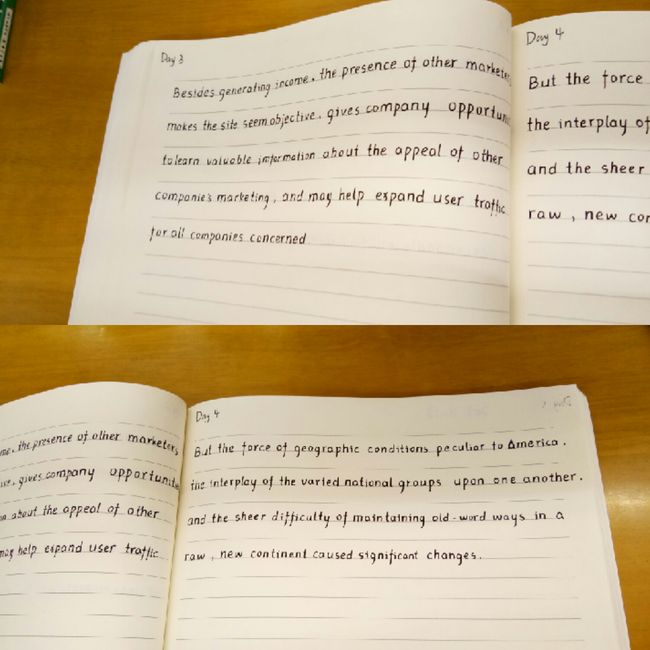 Day 3
Besides generating income, the presence of other marketers
makes the site seem objective, gives company opportunities
to learn valuable information about the appeal of other
companies marketing, and may help expand user traffic
for all companies concerned
Day 4
But the force
the interplay of
and the sheer
raw, new con
me, the presence of other marketers
ive, gives company opportunitie
about the appeal of other
may help expand user traffic
Day 4
But the force of geographic conditions peculiar to America,
the interplay of the varied national groups upon one another,
and the sheer difficulty of maintaining old-word ways in a
raw, new continent caused significant changes.